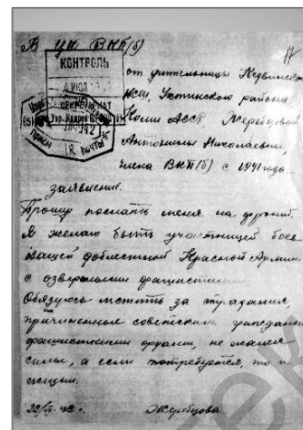 В ЦК ВКП(б)
КОНТРОЛЬ
от учительницы
НСШ, Ухтинского района
Коми АССР, Жеребцовой
Антонины Николаевны,
члена ВКП(б) с 1941 года
заявление.
Прошу послать меня на фронт.
Я желаю быть участницей боев
нашей доблестной Красной Армии
с озверелыми фашистами.
Обязуюсь мстить за страдания
причиненные советским гражданам
фашистскими ордами, не жалея
силы, а если потребуется, то и
жизни.
Жеребцова.